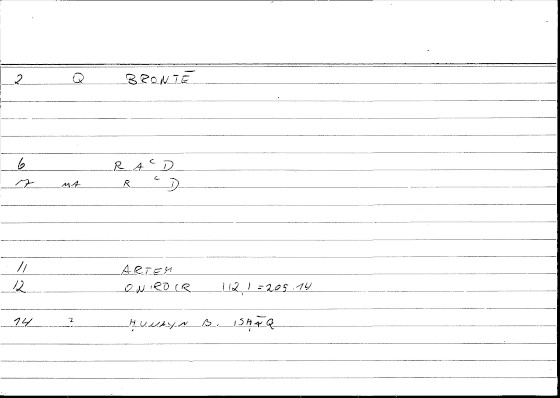 2 Q BRONTĒ
6 R A ᶜ D
17 MA R ᶜ D
11 ARTEM
12 ONIROCR 112,1 = 205.14
14 ? ḤUNAYN B. ISḤĀQ